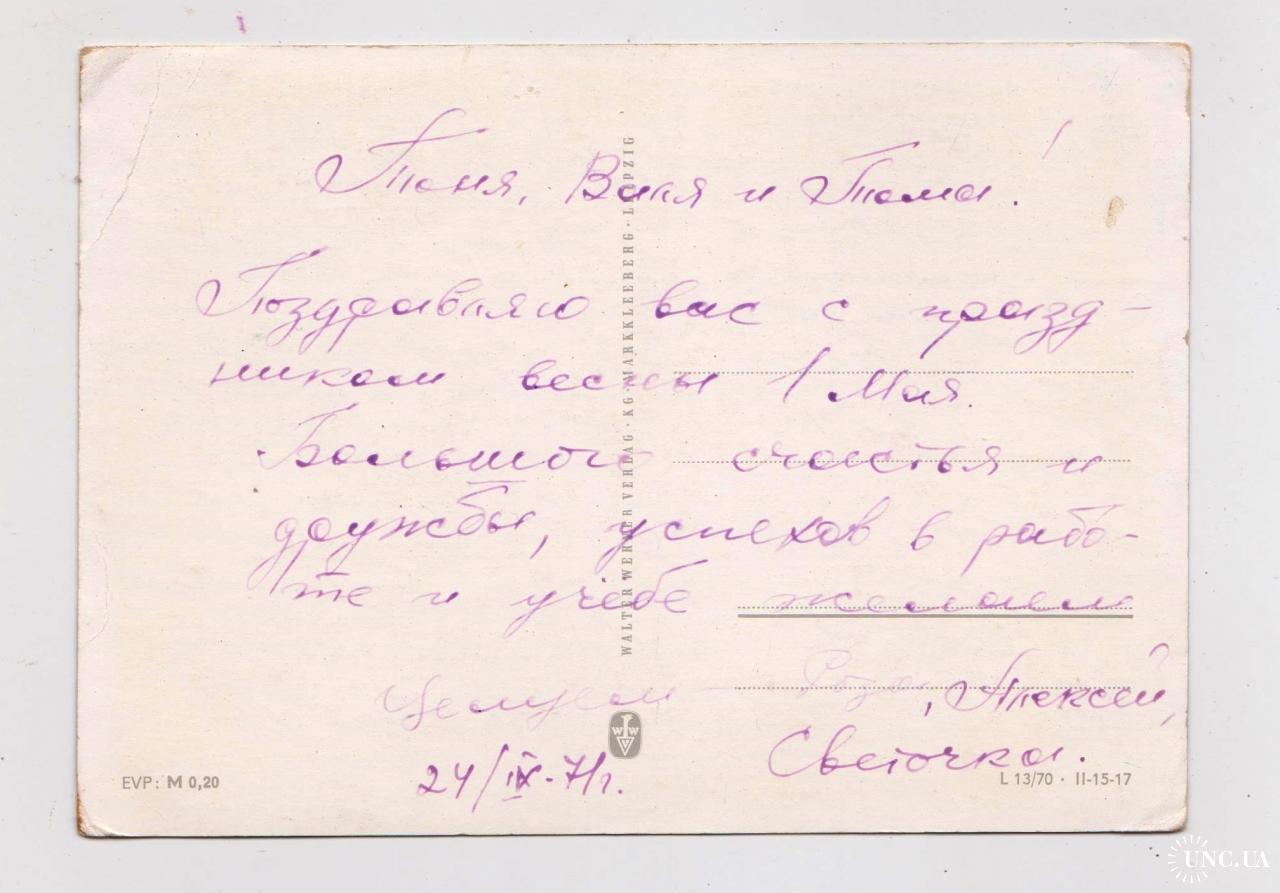 Таня, Валя и Тома!
Поздравляю вас с празд-
ником весны 1 Мая.
Большого счастья и
дружбы, успехов в рабо-
те и учебе желаем
Целуем – Роза, Алексей,
Светочка.
24/IV-71г.
WALTER WERNER VERLAG · KG · MARKKLEEBERG · LEIPZIG
WWV
EVP: M 0,20
L 13/70 · II-15-17
UNC.UA